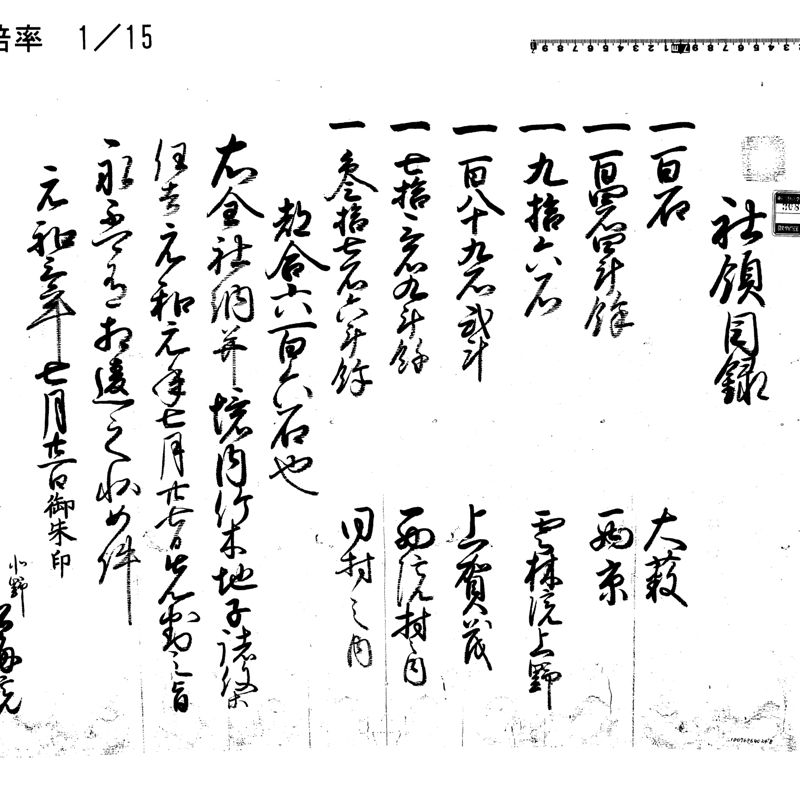 倍率 1/15
社領目録
一百石 大薮
一百四石四斗餘 西京
一九拾六石 雲林院上野
一百八十九石弐斗 上賀茂
一七拾三石九斗餘 西院村之内
一参拾七石六斗餘 同村之内
都合六百六石也
右全社納并境内竹木地子諸役等
任去元和元年七月廿七日先判之旨
永不可有相違之状如件
元和三年七月廿一日御朱印
北野